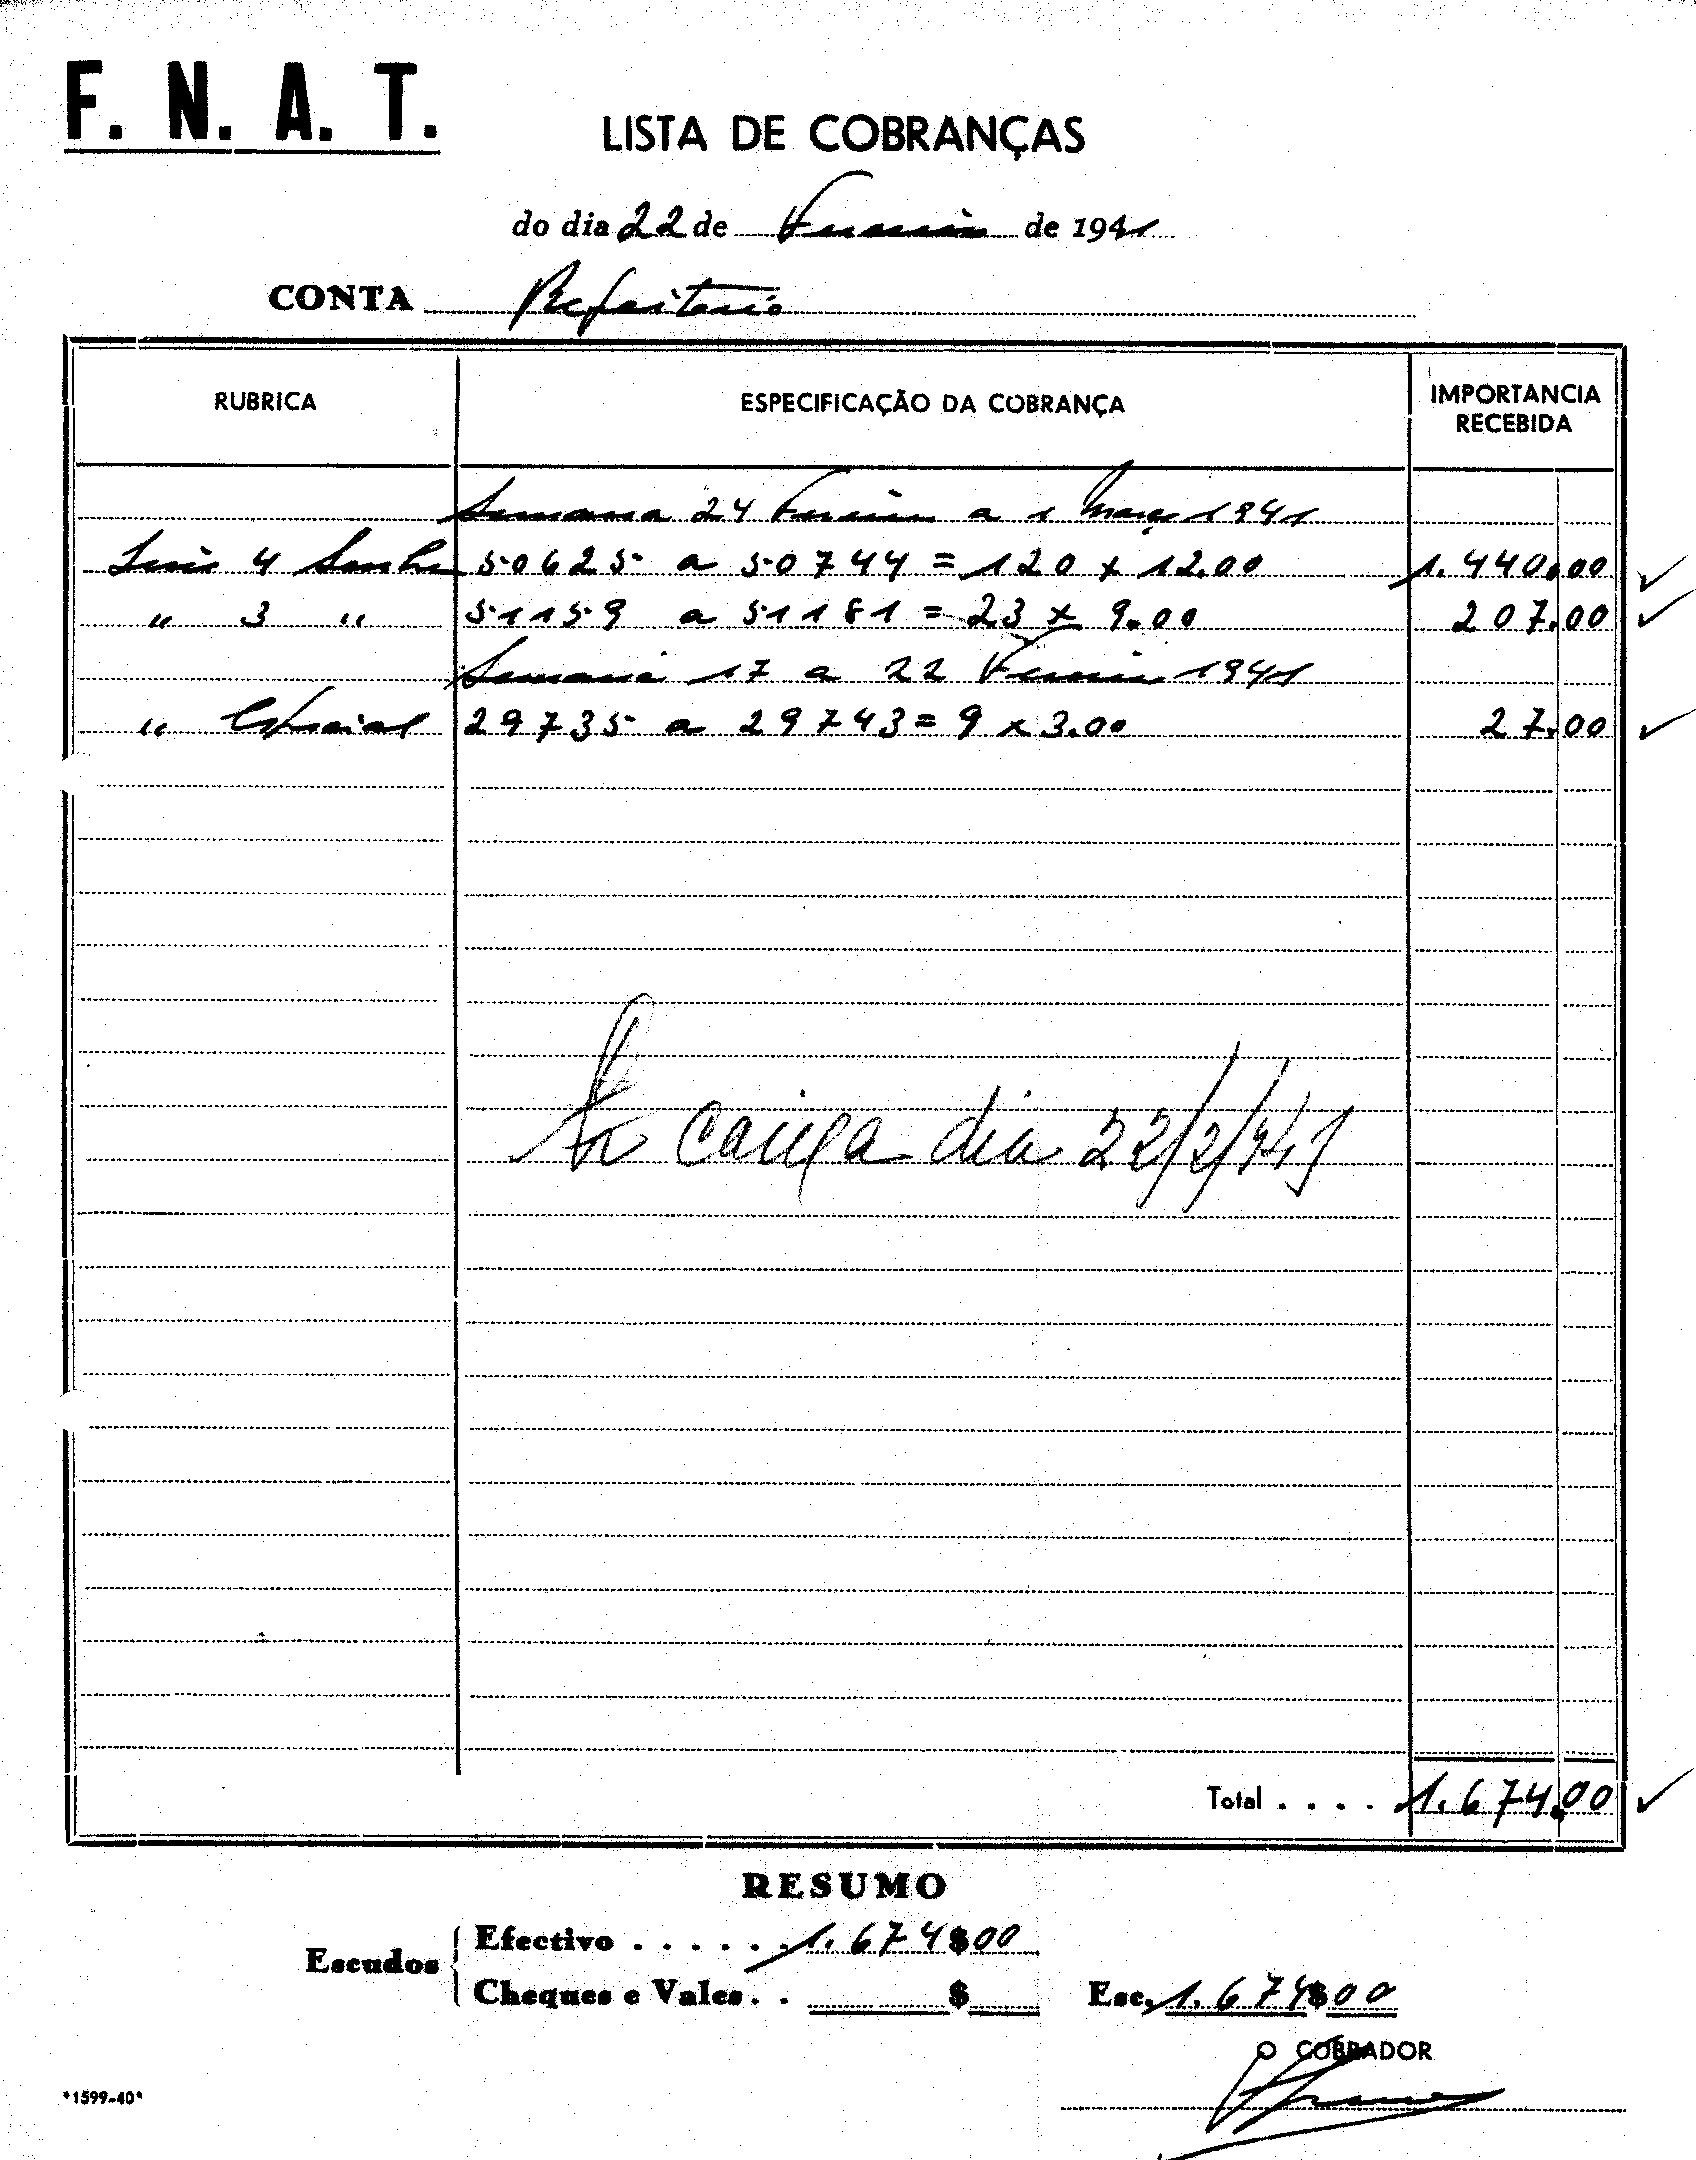 F. N. A. T.
LISTA DE COBRANÇAS
do dia 22 de Fevereiro de 1941
CONTA Refeitorio
RUBRICA ESPECIFICAÇÃO DA COBRANÇA IMPORTANCIA RECEBIDA
Semana 24 Fevereiro a 1 Março 1941
Serie 4 Senha 50625 a 50744 = 120 x 12.00 1.440.00
" 3 " 51159 a 51181 = 23 x 9.00 207.00
Semana 17 a 22 Fevereiro 1941
" Especial 29735 a 29743 = 9 x 3.00 27.00
caixa dia 22/2/941
Total . . . . 1.674.00
RESUMO
Escudos
Efectivo . . . . . . 1.674$00
Cheques e Vales . . $ Esc. 1.674$00
O COBRADOR
*1599-40*